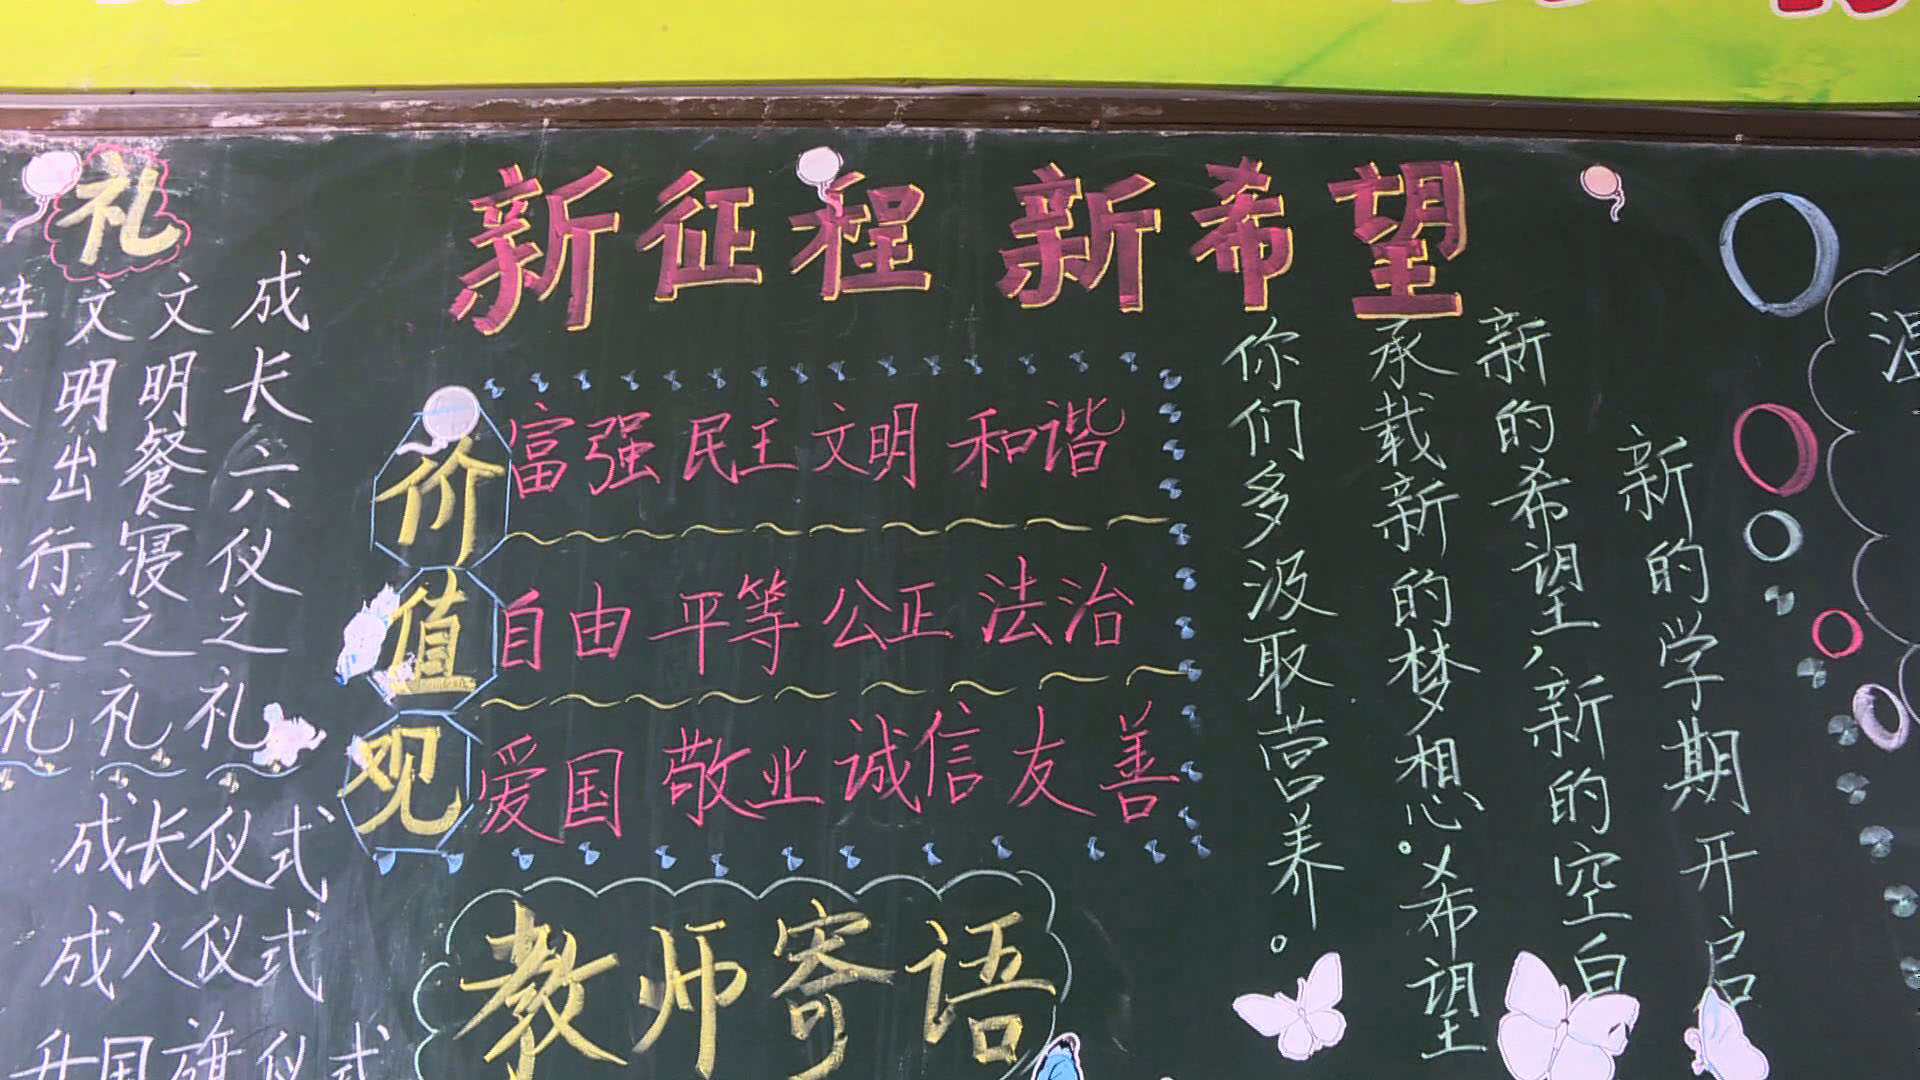 新征程 新希望
礼
成长六仪之礼
文明餐寝之礼
文明出行之礼
待
之礼
成长仪式
成人仪式
升国旗仪式
价值观
富强 民主 文明 和谐
自由 平等 公正 法治
爱国 敬业 诚信 友善
教师寄语
新的学期开启
新的希望，新的空白
承载新的梦想。希望
你们多汲取营养。